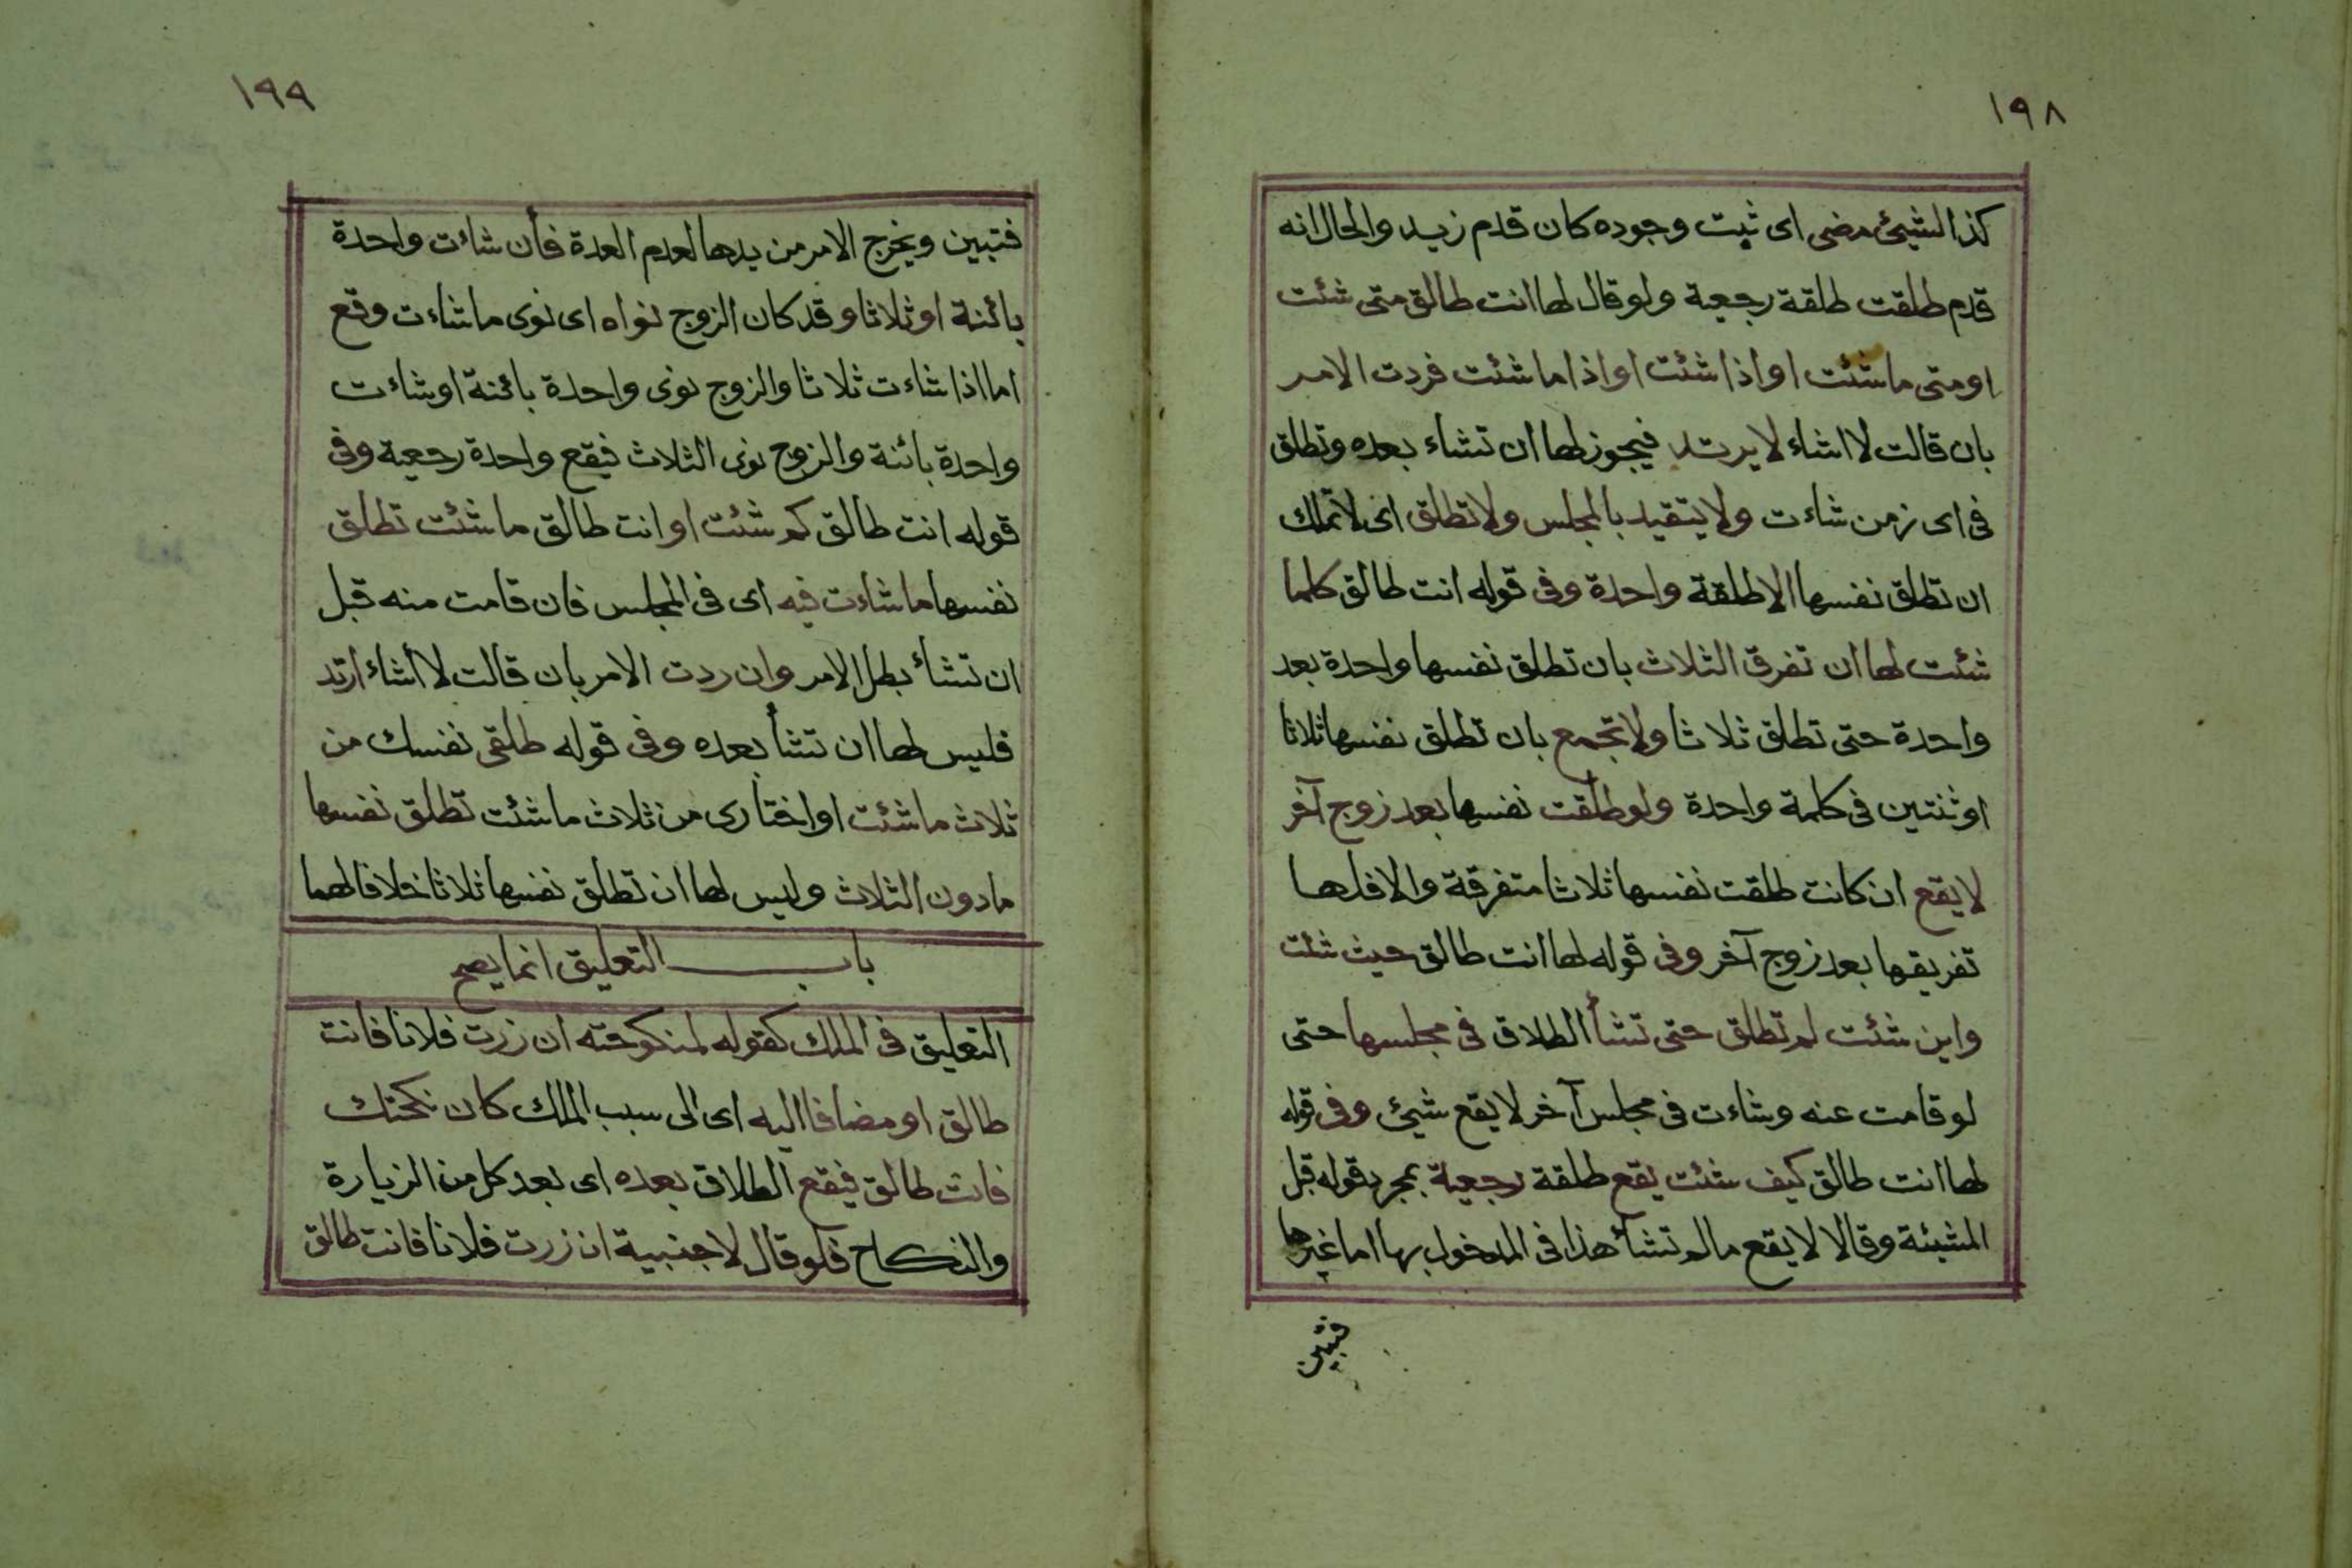 ١٩٨
كذا لشيئ مضى اى ثبت وجوده كان قدم زيد والحال انه
قدم طلقت طلقة رجعية ولو قال لها انت طالق متى شئت
او متى ما شئت او اذا شئت او اذا ما شئت فردت الامر
بان قالت لا اشاء لا يرتد فيجوز لها ان تشاء بعده وتطلق
فى اى زمن شاءت ولا يتقيد بالمجلس ولا تطلق اى لا تملك
ان تطلق نفسها الا طلقة واحدة وفى قوله انت طالق كلما
شئت لها ان تفرق الثلاث بان تطلق نفسها واحدة بعد
واحدة حتى تطلق ثلاثا ولا تجمع بان تطلق نفسها ثلاثا
او ثنتين فى كلمة واحدة ولو طلقت نفسها بعد زوج آخر
لا يقع ان كانت طلقت نفسها ثلاثا متفرقة والا فلها
تفريقها بعد زوج آخر وفى قوله لها انت طالق حيث شئت
واين شئت لم تطلق حتى تشأ الطلاق فى مجلسها حتى
لو قامت عنه وشاءت فى مجلس آخر لا يقع شيئ وفى قوله
لها انت طالق كيف شئت يقع طلقة رجعية بمجرد قوله قبل
المشيئة وقالا لا يقع مالم تشأ هذا فى المدخول بها اما غيرها
فتبين
١٩٩
فتبين ويخرج الامر من يدها لعدم العدة فأن شاءت واحدة
بائنة او ثلاثا وقد كان الزوج نواه اى نوى ما شاءت وقع
اما اذا شاءت ثلاثا والزوج نوى واحدة بائنة او شاءت
واحدة بائنة والزوج نوى الثلاث فيقع واحدة رجعية وفى
قوله انت طالق كم شئت او انت طالق ما شئت تطلق
نفسها ما شاءت فيه اى فى المجلس فان قامت منه قبل
ان تشأ بطل الامر وان ردت الامر بان قالت لا أشاء ارتد
فليس لها ان تشأ بعده وفى قوله طلقى نفسك من
ثلاث ما شئت او اختارى من ثلاث ما شئت تطلق نفسها
مادون الثلاث وليس لها ان تطلق نفسها ثلاثا خلافا لهما
باب التعليق انما يصح
التعليق فى الملك كقوله لمنكوحته ان زرت فلانا فانت
طالق او مضافا اليه اى الى سبب الملك كان نكحتك
فانت طالق فيقع الطلاق بعده اى بعد كل من الزيارة
والنكاح فلو قال لاجنبية ان زرت فلانا فانت طالق